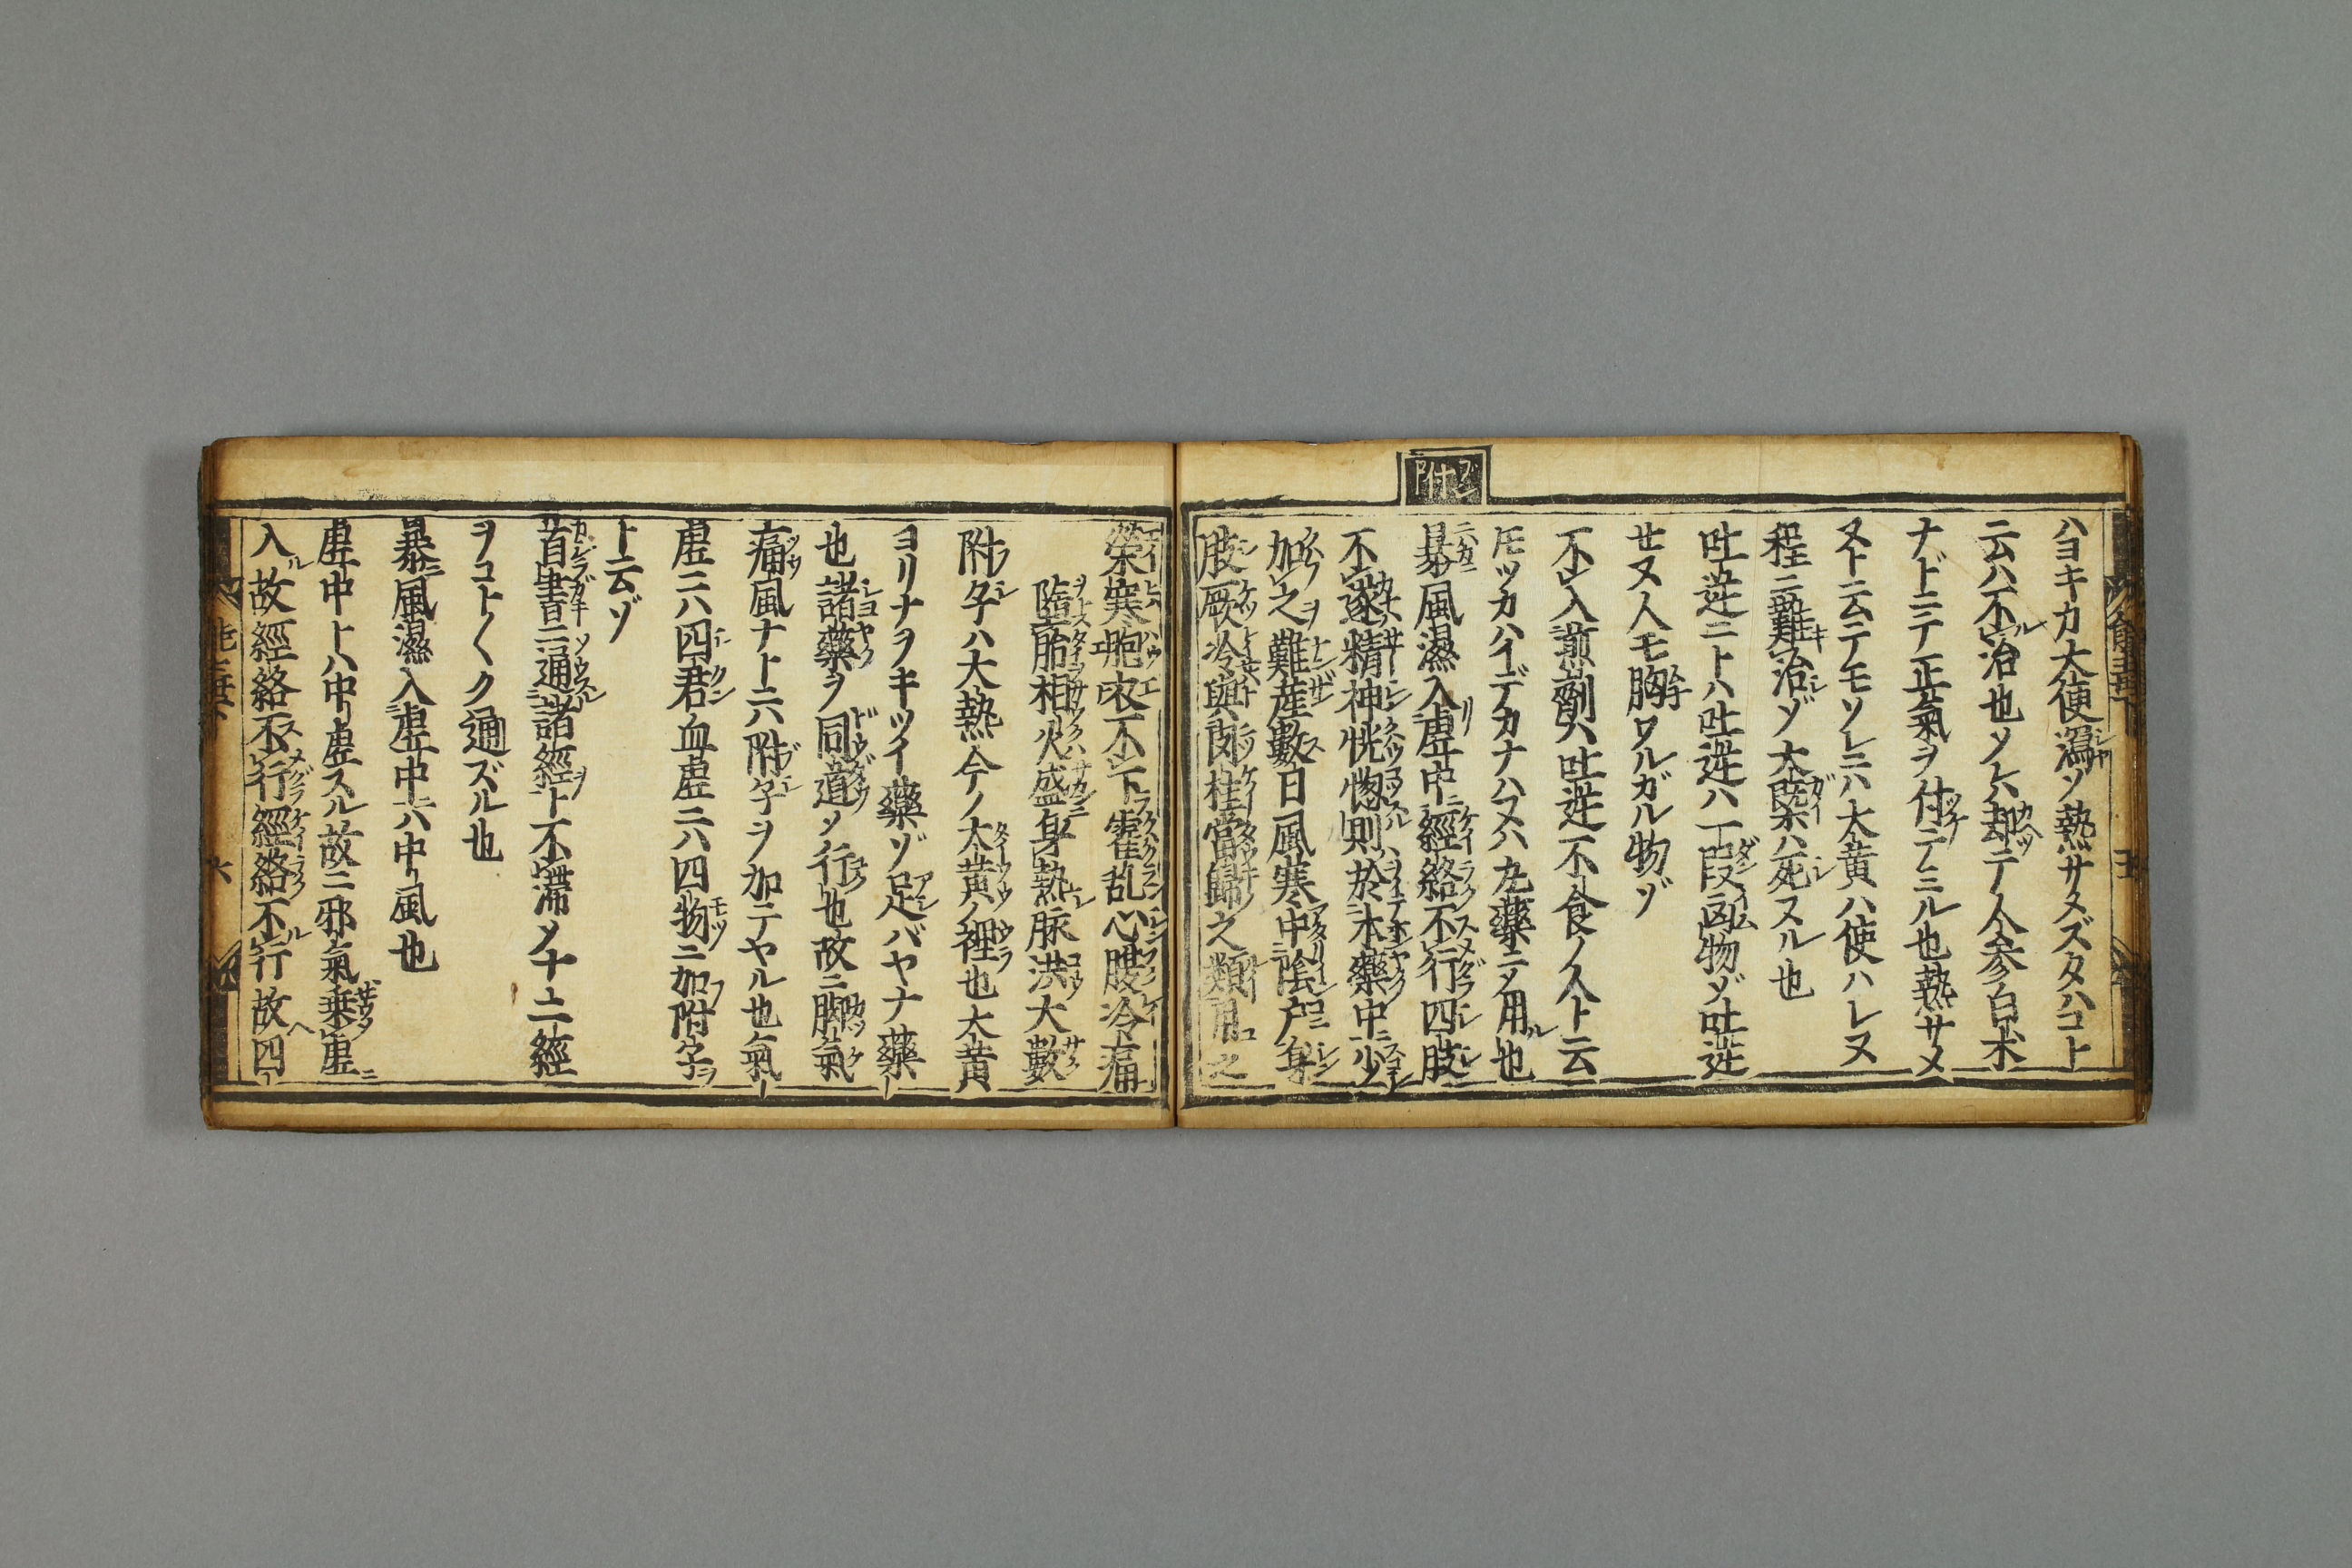 ハヨキカ大便瀉ソ熱サタズタハコト
云ハ不治也ソレハ却テ人参白朮
ナドニテ正氣ヲ付テミル也熱サメ
ヌト云テモソレニハ大黄ハ使ハレヌ
程ニ難治ゾ大槩ハ死スル也
吐逆ニトハ吐逆ハ一段凶物ゾ吐逆
せヌ人モ胸ワルガル物ゾ
不入煎劑ハ吐逆不食ノ人ト云
モツカハイデカナハヌハ丸藥ニメ用也
附
暴風濕入虚中經絡不行四肢
不遂精神恍惚則於本藥中少
加之難産數日風寒中陰戸身
肢厥冷與肉桂當歸之類用之
榮寒胞衣不下霍乱心腹冷痛
墮胎相火盛身熱脉洪大數
附子ハ大熱今ノ大黄ノ裡也大黄
ヨリナヲキツイ藥ゾ足バヤナ藥
也諸藥ヲ同道ソ行也故ニ脚氣
痛風ナトニハ附子ヲ加テヤル也氣
虚ニハ四君血虚ニハ四物ニ加附子
ト云ゾ
首書ニ通諸經ト不滞メ十二經
ヲコト〱ク通ズル也
暴風濕入虚中ニハ中風也
虚中トハ中虚スル故ニ邪氣乗虚
入故經絡不行經絡不行故四
六